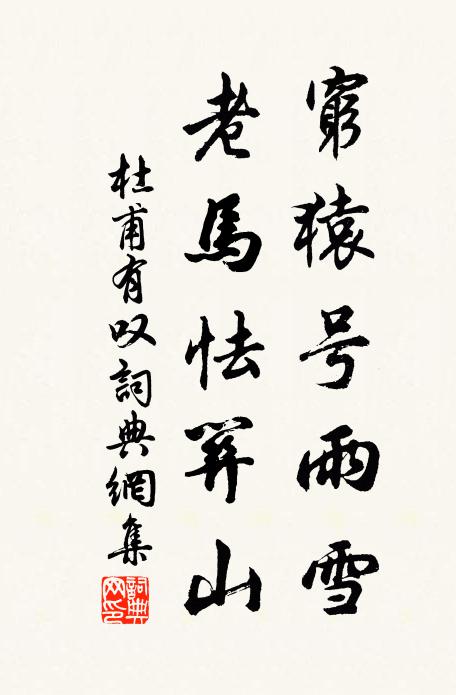 窮猿号雨雪
老馬怯關山
杜甫有叹詞典網集
詞典网印